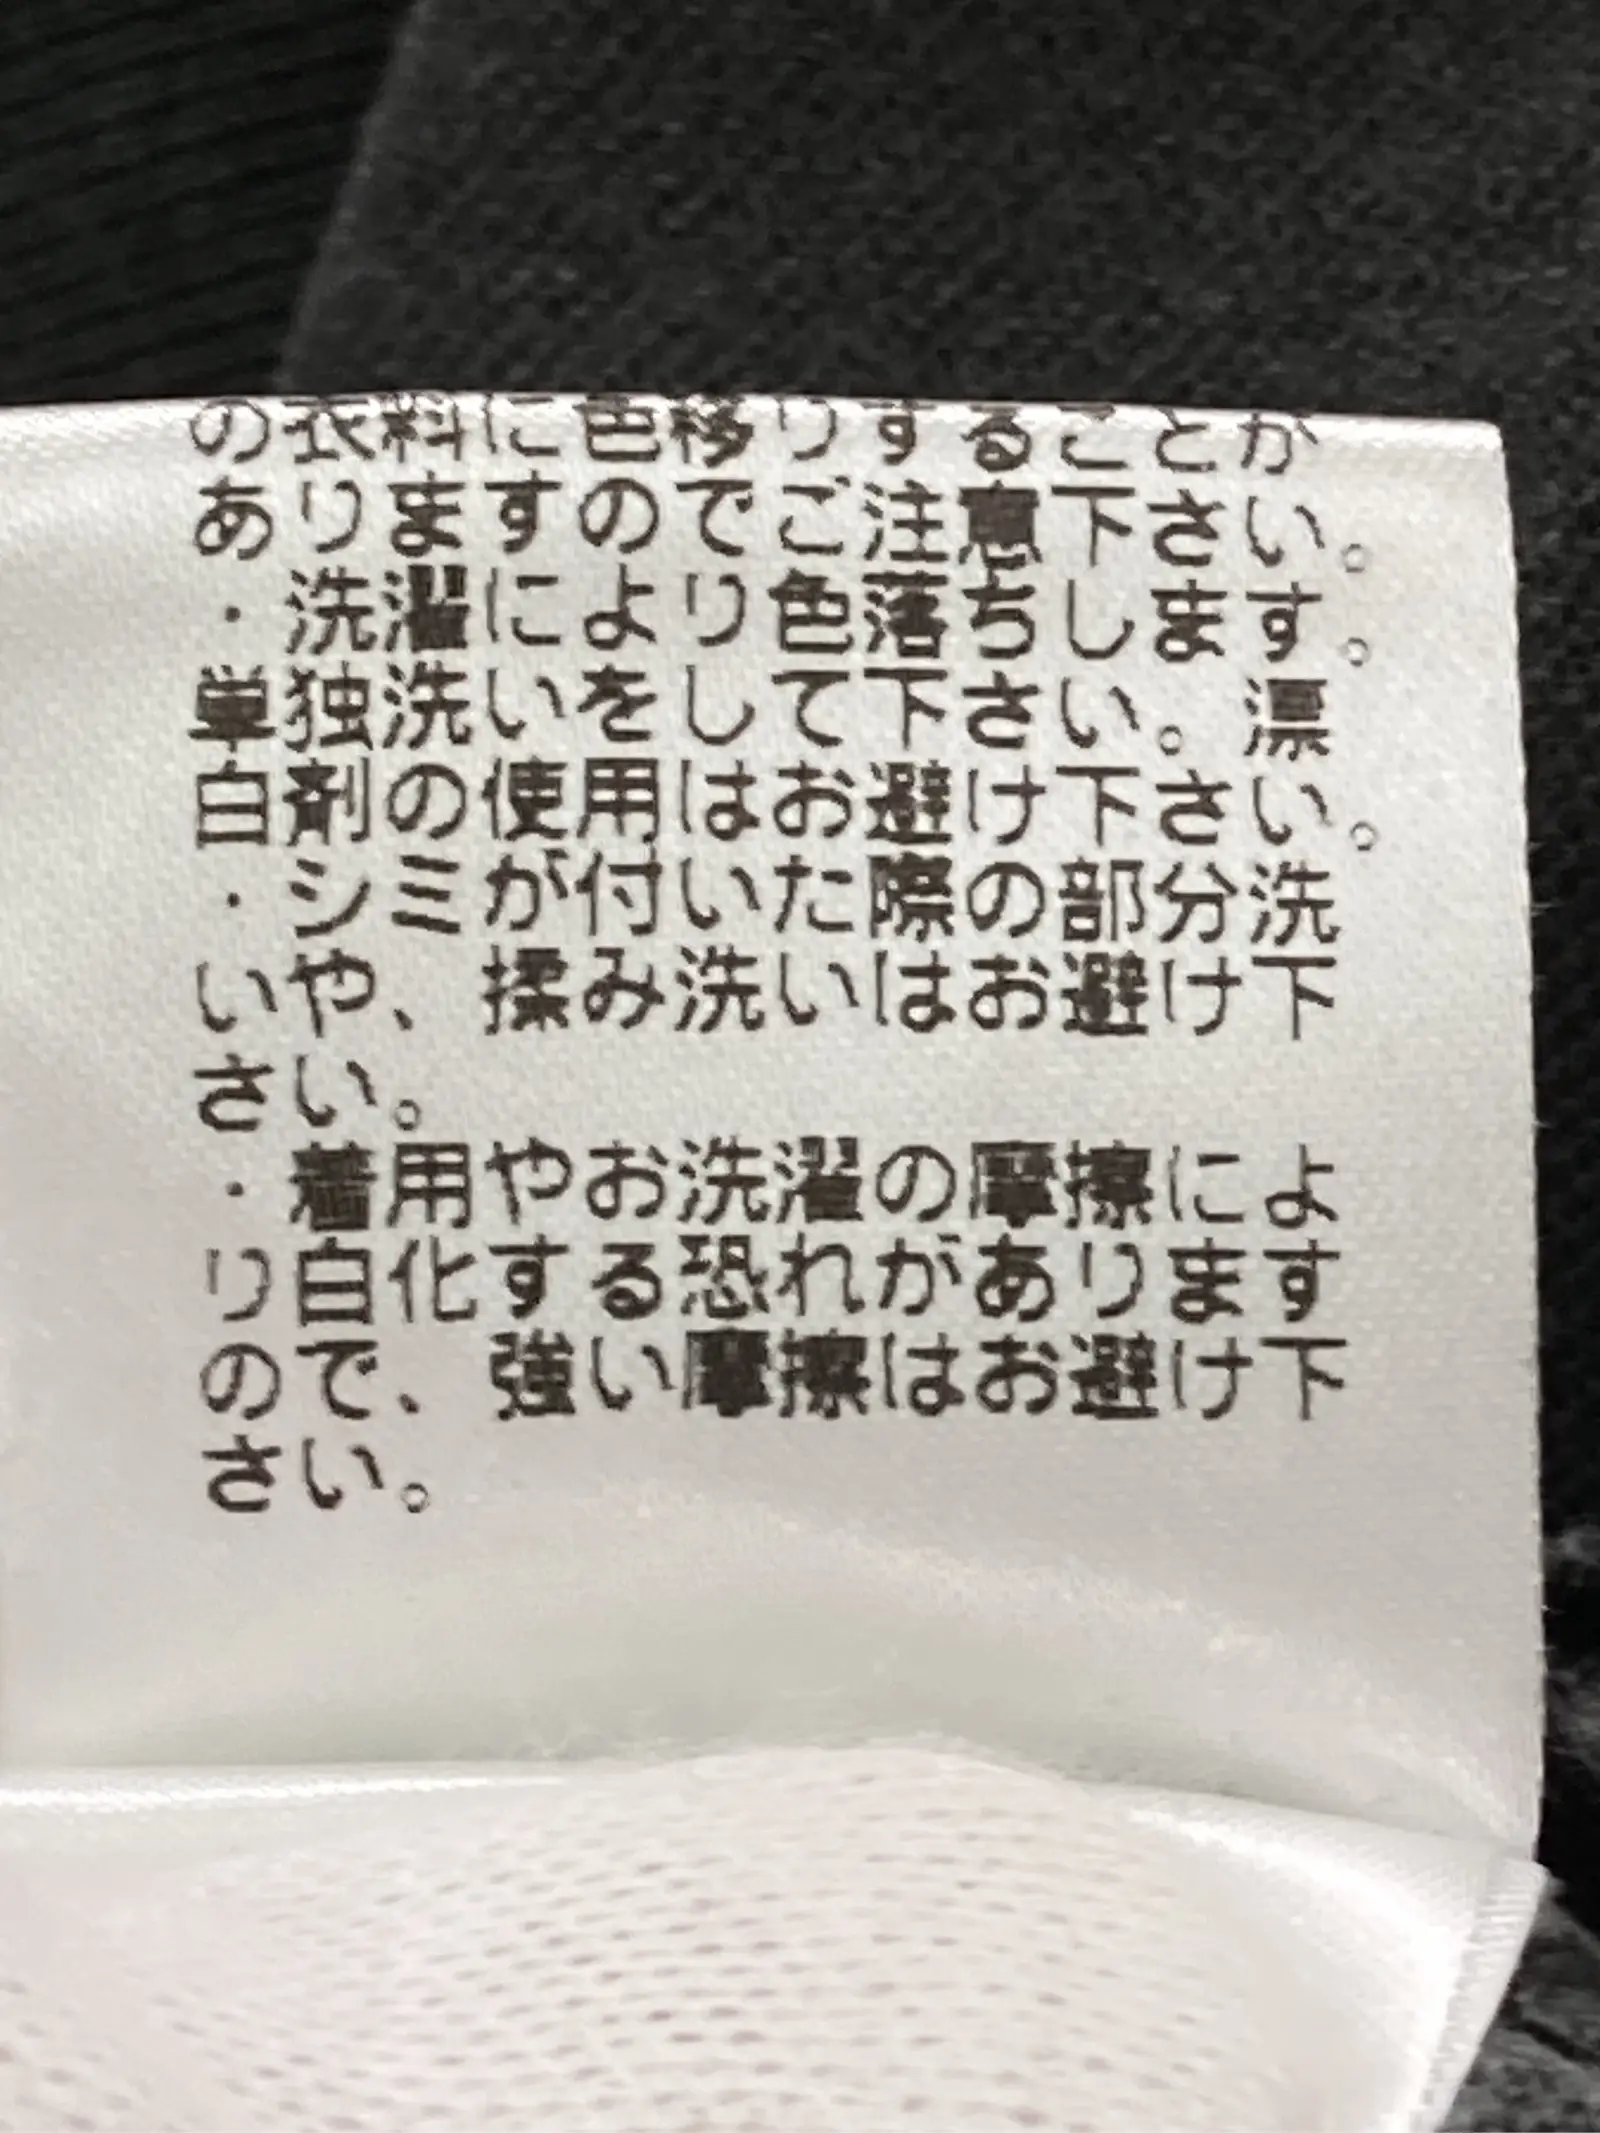 の衣料に色移りすることが
ありますのでご注意下さい。
・洗濯により色落ちします。
単独洗いをして下さい。漂
白剤の使用はお避け下さい。
・シミが付いた際の部分洗
いや、揉み洗いはお避け下
さい。
・着用やお洗濯の摩擦によ
り白化する恐れがあります
ので、強い摩擦はお避け下
さい。